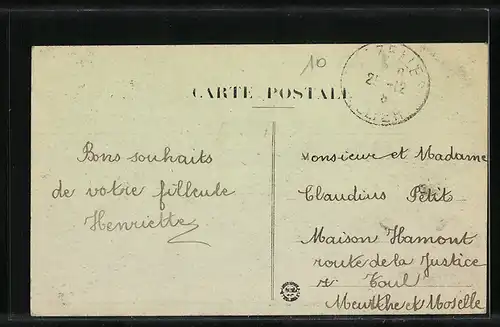 10
CARTE POSTALE
Bons souhaits
de votre filleule
Henriette
Monsieur et Madame
Claudius Petit
Maison Hamont
route de la Justice
Toul
Meurthe et Moselle